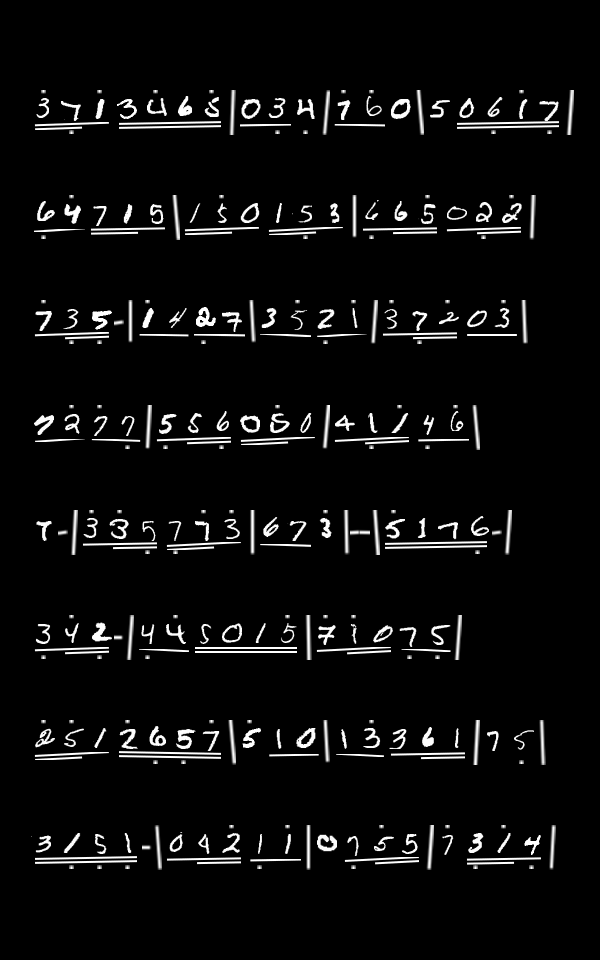 3713465|034|760|50617|
64715|150153|665022|
735-|1427|3521|37203|
7277|556050|41146|
7-|335773|673|--|5176-|
342-|445015|71075|
2512657|510|13361|75|
3151-|04211|0755|7314|